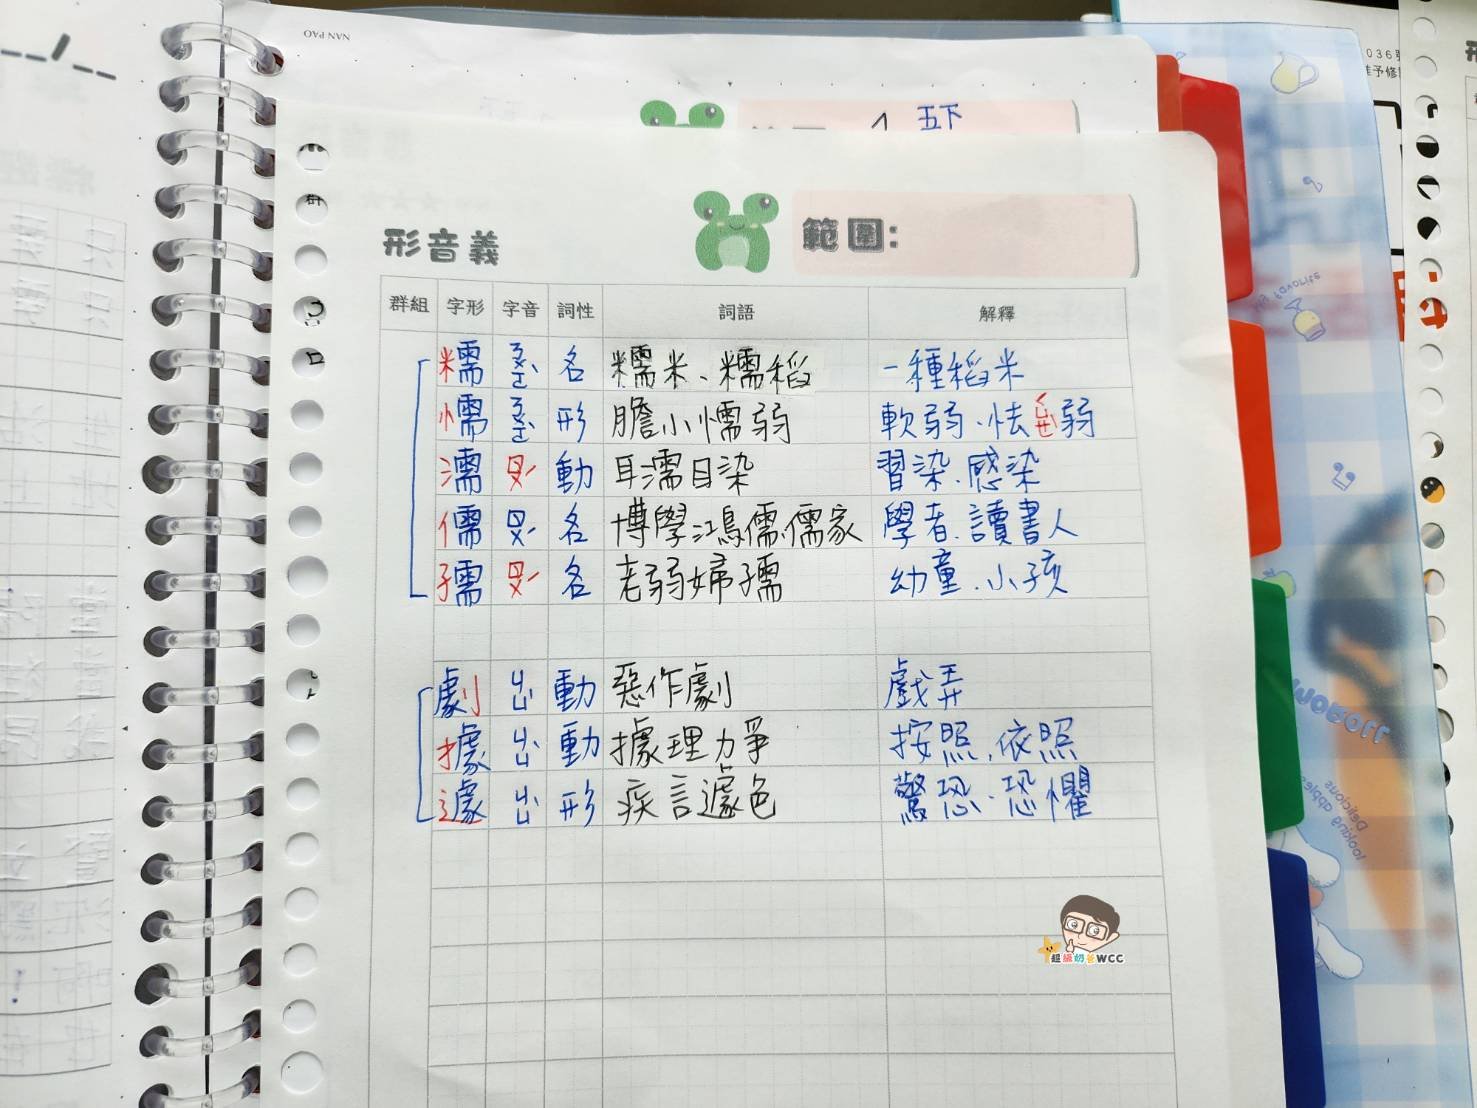 NAN PAO
五下
形音義 範圍:
群組 字形 字音 詞性 詞語 解釋
糯 ㄋㄨㄛˋ 名 糯米、糯稻 一種稻米
懦 ㄋㄨㄛˋ 形 膽小懦弱 軟弱.怯ㄑㄩㄝˋ弱
濡 ㄖㄨˊ 動 耳濡目染 習染.感染
儒 ㄖㄨˊ 名 博學鴻儒、儒家 學者.讀書人
孺 ㄖㄨˊ 名 老弱婦孺 幼童.小孩
劇 ㄐㄩˋ 動 惡作劇 戲弄
據 ㄐㄩˋ 動 據理力爭 按照.依照
遽 ㄐㄩˋ 形 疾言遽色 驚恐.恐懼
超級奶爸WCC
036
准予修
My Favorite
looking apples
Delicious